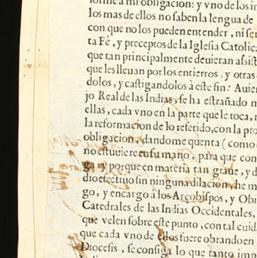 forme a mi obligacion: y vno de los in
los mas de ellos no saben la lengua de
con que no los pueden entender, ni ser
ta Fé, y preceptos de la Iglesia Catolic
que tan principalmente deuieran assist
ques les lleuan por los entierros, y otras
dolos, y castigandolos à este fin: Auien
jo Real de las Indias, se ha estrañado m
ellas, cada vno en la parte que le toca,
la reformacion de lo referido, con la pro
obligacion, dandome quenta (como
no estuuiere en su mano, para que con
ga, y porque en materia tan graue, y de
dio efectiuo sin ninguna dilacion, he m
go, y encargo à los Arçobispos, y Obi
Catedrales de las Indias Occidentales,
que velen sobre este punto, con tal cuid
que cada vno de ellos fuere obrando en
Diocesis, se consiga lo que tanto impor